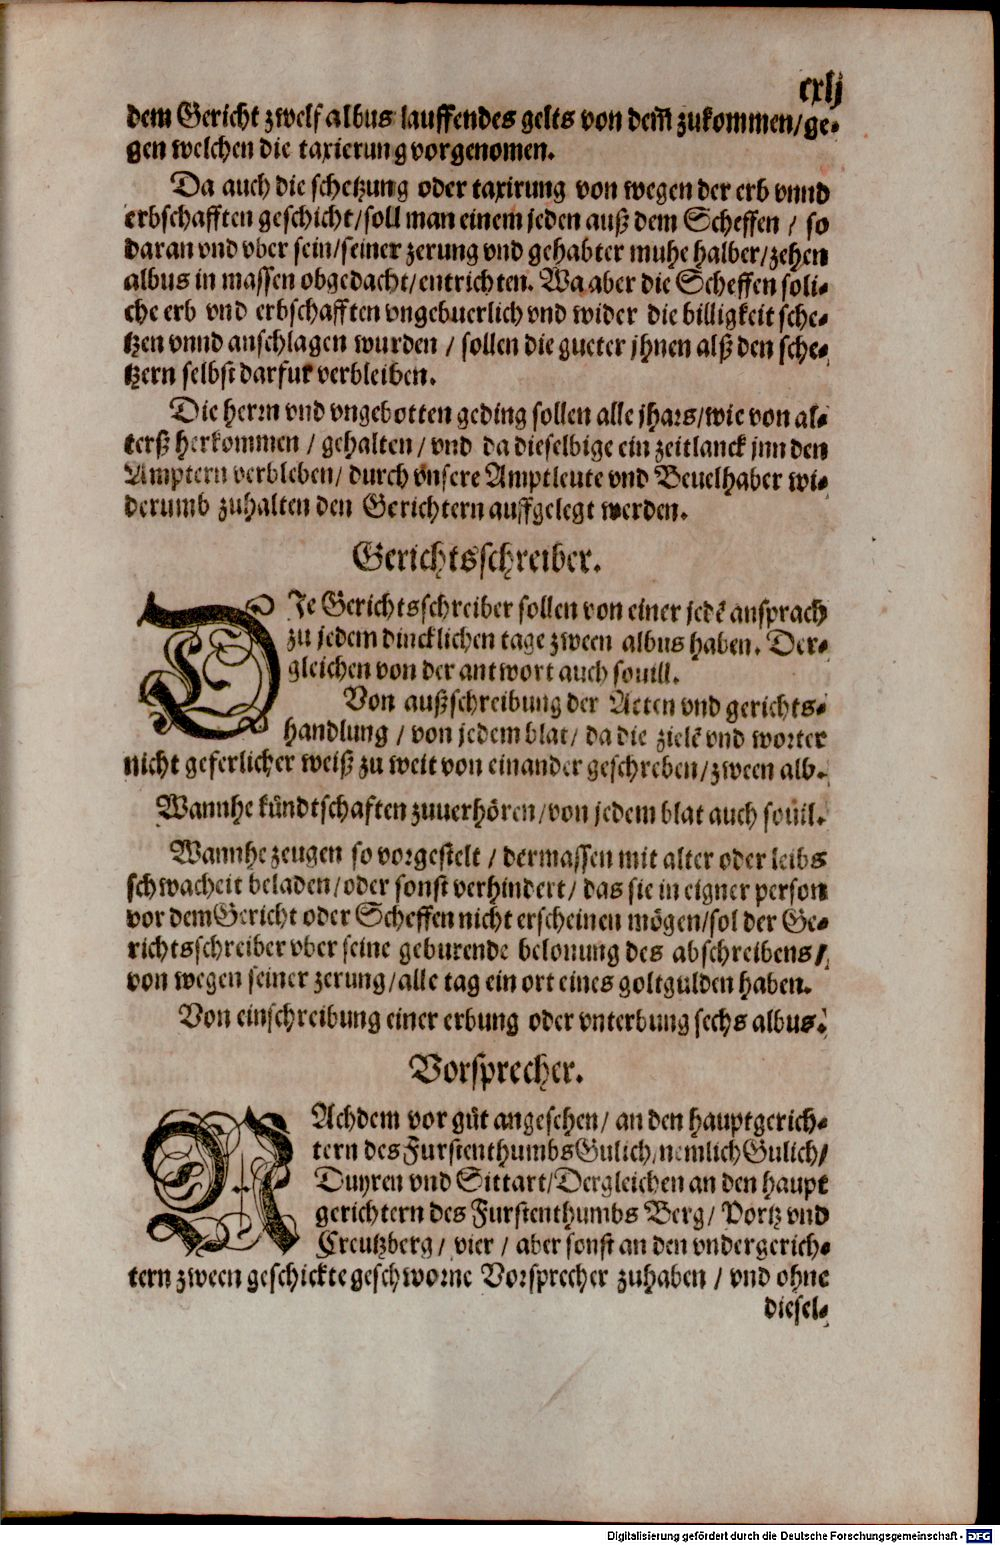 cxlj
dem Gericht zwelf albus lauffendes gelts von dem̃ zukommen/ge-
gen welchen die taxierung vorgenomen.
Da auch die schetzung oder taxirung von wegen der erb vnnd
erbschafften geschicht/soll man einem jeden auß dem Scheffen / so
daran vnd vber sein/seiner zerung vnd gehabter muhe halber/zehen
albus in massen obgedacht/entrichten. Wa aber die Scheffen soli-
che erb vnd erbschafften vngebuerlich vnd wider die billigkeit sche-
tzen vnnd anschlagen wurden / sollen die gueter jhnen alß den sche-
tzern selbst darfur verbleiben.
Die herrn vnd vngebotten geding sollen alle jhars/wie von al-
terß herkommen / gehalten / vnd da dieselbige ein zeitlanck jnn den
Amptern verbleben/ durch vnsere Amptleute vnd Beuelhaber wi-
derumb zuhalten den Gerichtern auffgelegt werden.
Gerichtsschreiber.
DJe Gerichtsschreiber sollen von einer jedẽ ansprach
zu jedem dincklichen tage zween albus haben. Der-
gleichen von der antwort auch souill.
Von außschreibung der Acten vnd gerichts-
handlung / von jedem blat/ da die zielẽ vnd worter
nicht geferlicher weiß zu weit von einander geschreben/zween alb.
Wannhe kündtschaften zuuerhören/von jedem blat auch souil.
Wannhe zeugen so vorgestelt / dermassen mit alter oder leibs
schwacheit beladen/oder sonst verhindert/ das sie in eigner person
vor dem Gericht oder Scheffen nicht erscheinen mögen/sol der Ge-
richtsschreiber vber seine geburende belonung des abschreibens/
von wegen seiner zerung/alle tag ein ort eines goltgulden haben.
Von einschreibung einer erbung oder vnterbung sechs albus.
Vorsprecher.
NAchdem vor gůt angesehen/ an den hauptgerich-
tern des Furstenthumbs Gulich/nemlich Gulich/
Duyren vnd Sittart/Dergleichen an den haupt
gerichtern des Furstenthumbs Berg/ Portz vnd
Creutzberg/ vier / aber sonst an den vndergerich-
tern zween geschickte geschworne Vorsprecher zuhaben / vnd ohne
diesel-
Digitalisierung gefördert durch die Deutsche Forschungsgemeinschaft - DFG